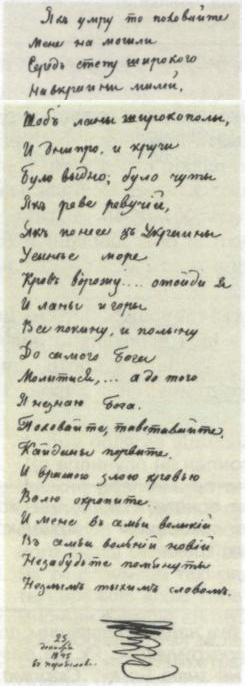 Якъ умру то поховайте
Мене на могыли
Середъ степу широкого
На вкраини милій,
Щобъ ланы широкополы,
И Днипро, и кручи
Було выдно; було чуты
Якъ реве ревучій,
Якъ понесе зъ Украины
У синье море
Кровъ ворожу.... отойди я
И ланы и горы
Все покину, и полыну
До самого Бога
Молитися,... а до того
Я незнаю Бога.
Поховайте, тавставайте.
Кайданы порвите.
И вражою злою кровью
Волю окропите.
И мене въ семьи великій
Въ семьи вольній новій
Незабудьте помянуты
Незлымъ тыхимъ словомъ.
25
декабря
1845